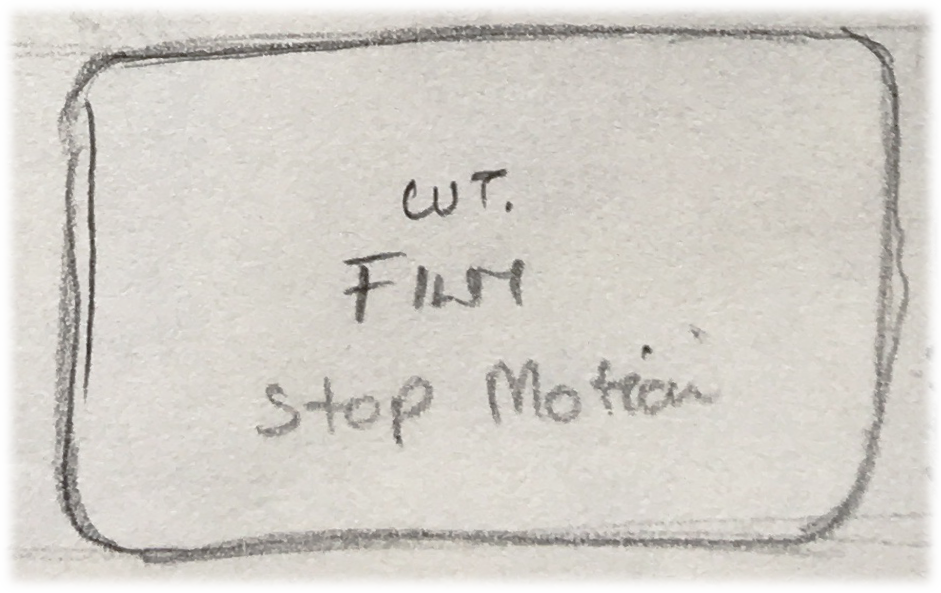 CUT.
FILM
Stop Motion